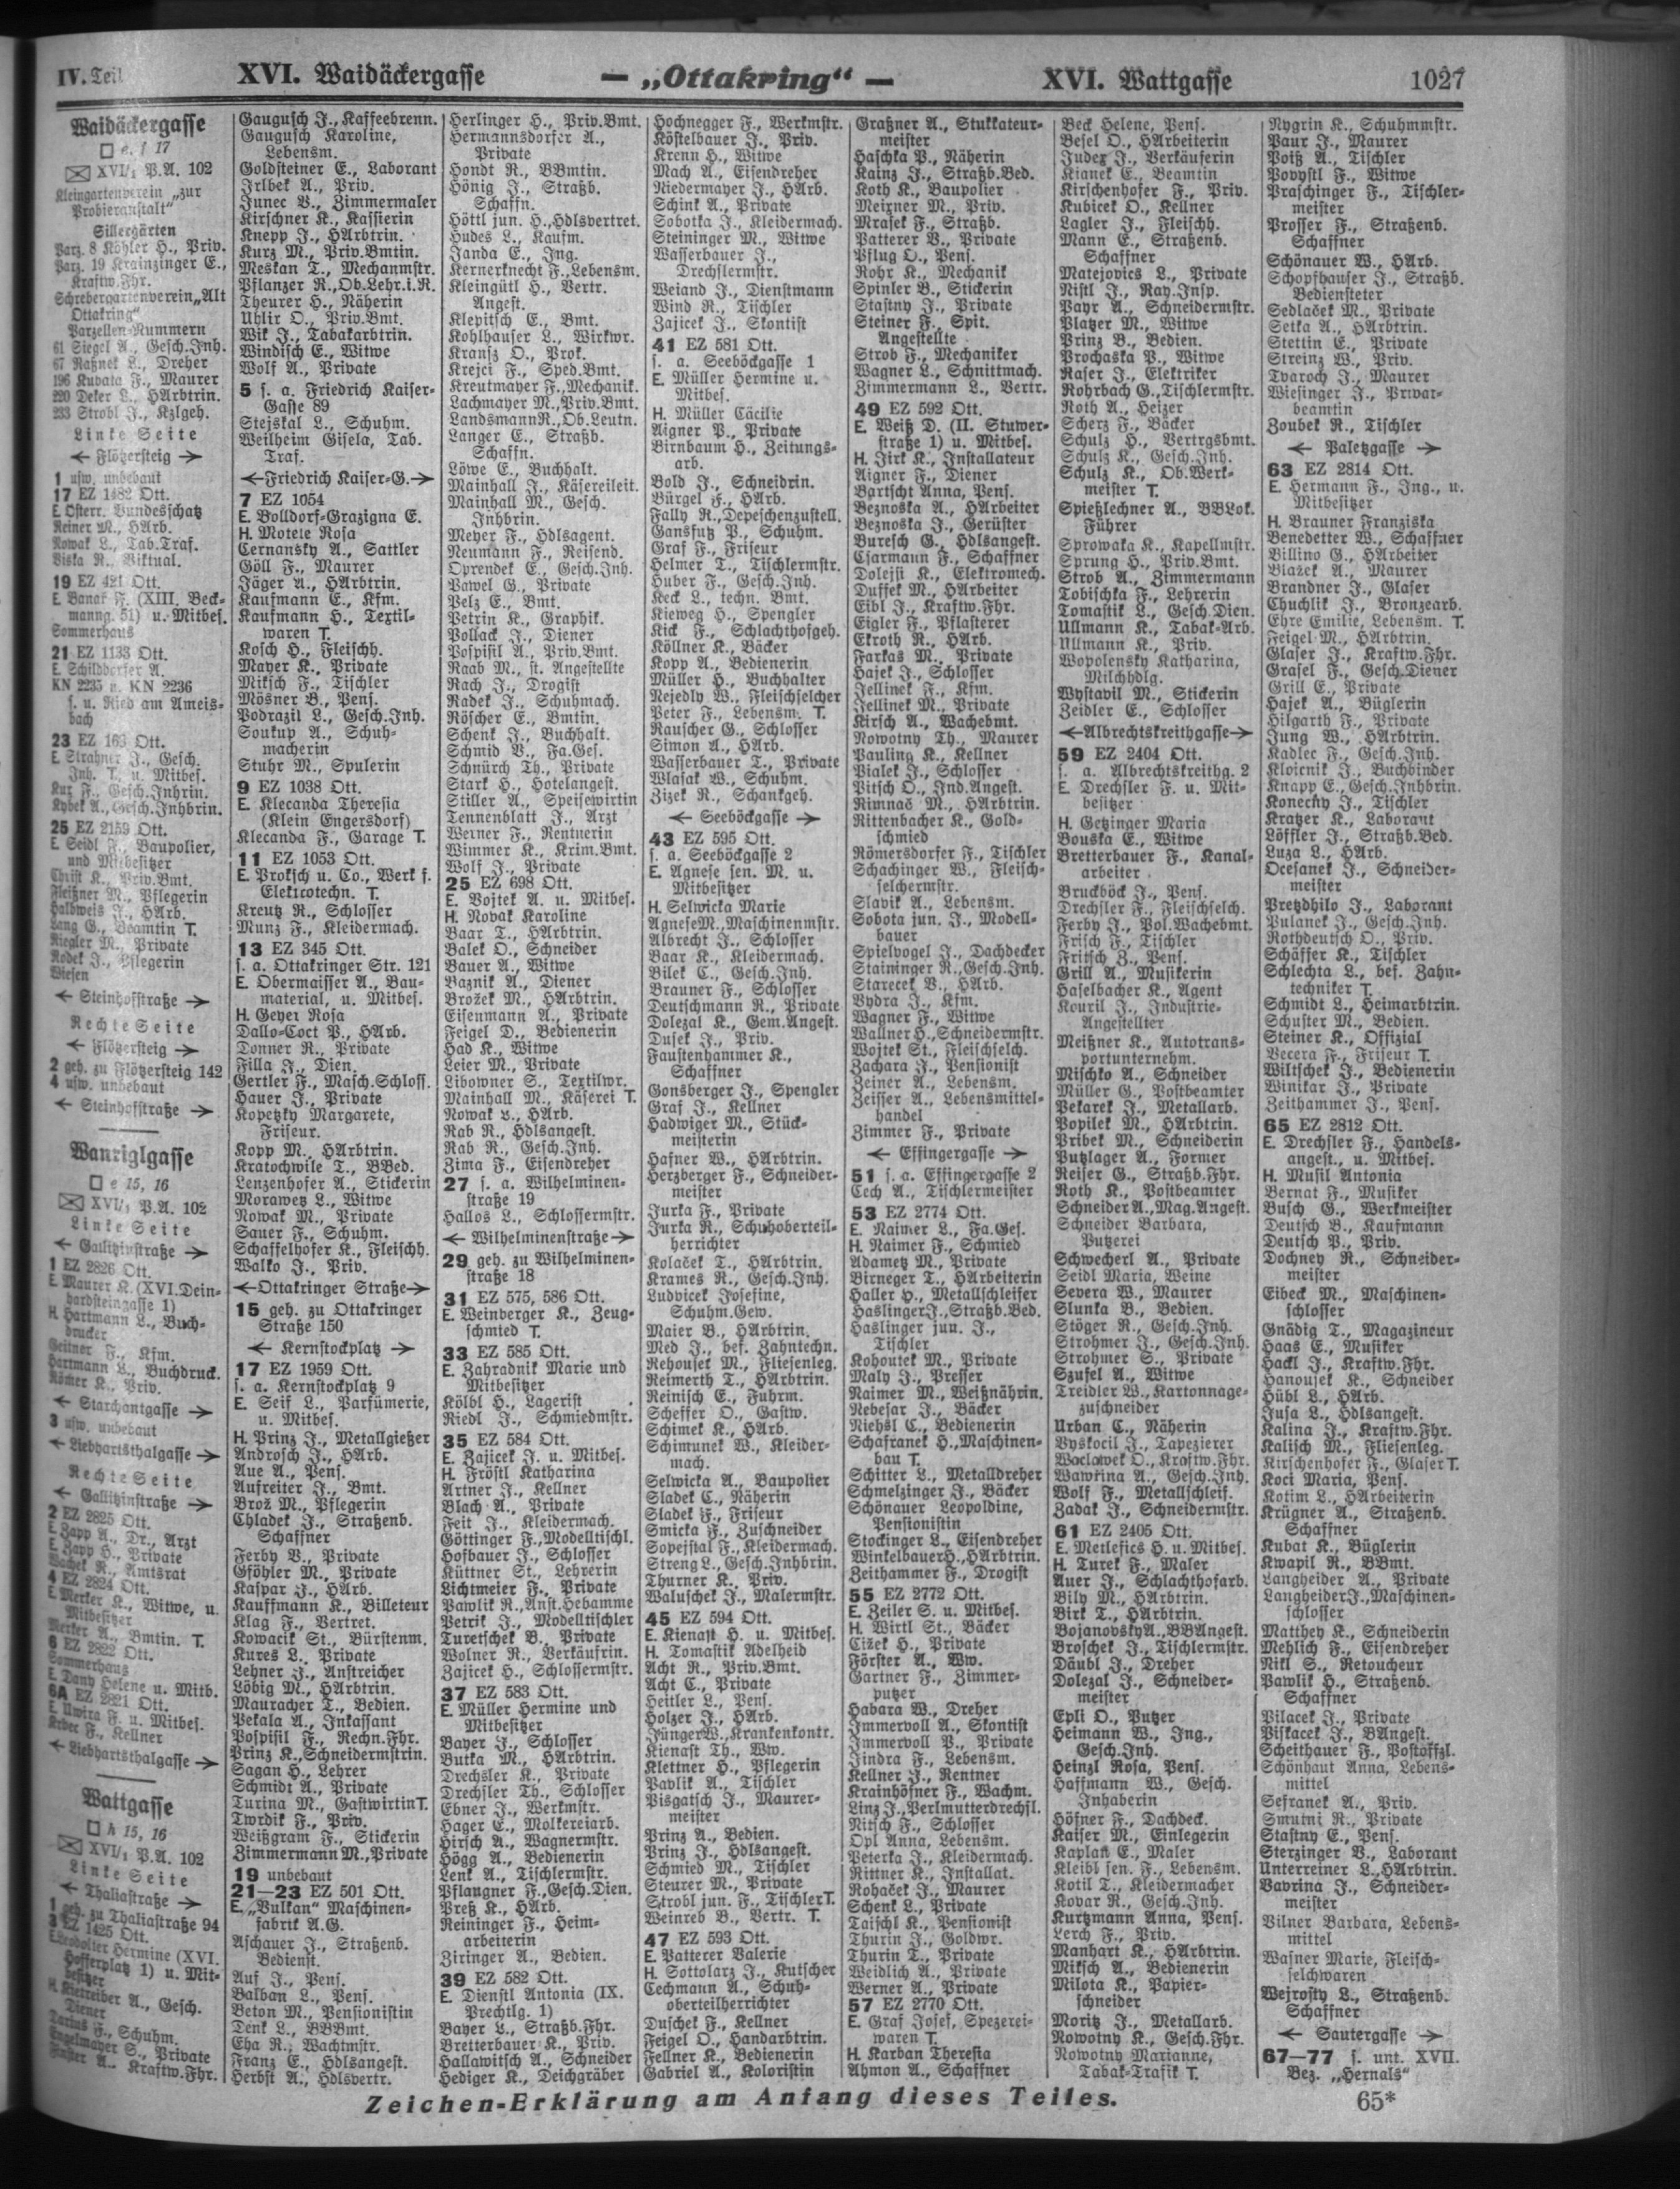 IV. Teil
XVI. Waidäckergasse
— „Ottakring“ —
XVI. Wattgasse
1027
Waidäckergasse
e, f 17
XVI/1 P.A. 102
Kleingartenverein „zur
Probieranstalt“
Sillergärten
Parz. 8 Köhler H., Priv.
Parz. 19 Krainzinger E.,
Kraftw.Fhr.
Schrebergartenverein „Alt
Ottakring“
Parzellen-Nummern
61 Siegel A., Gesch.Inh.
67 Raßnek L., Dreher
196 Kubata F., Maurer
220 Deker L., HArbtrin.
233 Strobl J., Kzlgeh.
Linke Seite
← Flötzersteig →
1 usw. unbebaut
17 EZ 1482 Ott.
E. Österr. Bundesschatz
Reiner M., HArb.
Nowak L., Tab.Traf.
Biska R., Viktual.
19 EZ 421 Ott.
E. Banak F. (XIII. Beck-
manng. 51) u. Mitbes.
Sommerhaus
21 EZ 1133 Ott.
E. Schilddorfer A.
KN 2235 u. KN 2236
s. u. Ried am Ameis-
bach
23 EZ 163 Ott.
E. Strahner J., Gesch.
Inh. T. u. Mitbes.
Kux F., Gesch.Inhrin.
Kybek A., Gesch.Inhbrin.
25 EZ 2159 Ott.
E. Seidl F., Baupolier,
und Mitbesitzer
Christ K., Priv.Bmt.
Fleißner M., Pflegerin
Halbweis J., HArb.
Lang G., Beamtin T.
Riegler M., Private
Rodek J., Pflegerin
Wiesen
← Steinhofstraße →
Rechte Seite
← Flötzersteig →
2 geh. zu Flötzersteig 142
4 usw. unbebaut
← Steinhofstraße →
Wanriglgasse
e 15, 16
XVI/1 P.A. 102
Linke Seite
← Gallitzinstraße →
1 EZ 2826 Ott.
E. Maurer K. (XVI. Dein-
hardsteingasse 1)
H. Hartmann L., Buch-
drucker
Geitner F., Kfm.
Hartmann L., Buchdruck.
Römer K., Priv.
← Starchantgasse →
3 usw. unbebaut
← Liebhartsthalgasse →
Rechte Seite
← Gallitzinstraße →
2 EZ 2825 Ott.
E. Zapp A., Dr., Arzt
E. Zapp H., Private
Wachek R., Amtsrat
4 EZ 2824 Ott.
E. Merker K., Witwe, u.
Mitbesitzer
Merker A., Bmtin. T.
6 EZ 2822 Ott.
Sommerhaus
E. Dany Helene u. Mitb.
6A EZ 2821 Ott.
E. Uwira F. u. Mitbes.
Krbec F., Kellner
← Liebhartsthalgasse →
Wattgasse
h 15, 16
XVI/1 P.A. 102
Linke Seite
← Thaliastraße →
1 geh. zu Thaliastraße 94
3 EZ 1425 Ott.
Hermine (XVI.
Hofferplatz 1) u. Mit-
besitzer
H. Kietreiber A., Gesch.
Diener
Darius F., Schuhm.
Engelmayer S., Private
A., Kraftw.Fhr.
Gaugusch J., Kaffeebrenn.
Gaugusch Karoline,
Lebensm.
Goldsteiner E., Laborant
Irlbek A., Priv.
Junec B., Zimmermaler
Kirschner K., Kassierin
Knepp J., HArbtrin.
Kurz M., Priv.Bmtin.
Meskan T., Mechanmstr.
Pflanzer R., Ob.Lehr.i.R.
Theurer H., Näherin
Uhlir O., Priv.Bmt.
Wik J., Tabakarbtrin.
Windisch E., Witwe
Wolf A., Private
5 s. a. Friedrich Kaiser-
Gasse 89
Stejskal L., Schuhm.
Weilheim Gisela, Tab.
Traf.
←Friedrich Kaiser-G.→
7 EZ 1054
E. Volldorf-Grazigna E.
H. Motele Rosa
Cernansky A., Sattler
Göll F., Maurer
Jäger A., HArbtrin.
Kaufmann E., Kfm.
Kaufmann H., Textil-
waren T.
Kosch H., Fleischh.
Mayer K., Private
Miksch F., Tischler
Mösner B., Pens.
Podrazil L., Gesch.Inh.
Soukup A., Schuh-
macherin
Stuhr M., Spulerin
9 EZ 1038 Ott.
E. Klecanda Theresia
(Klein Engersdorf)
Klecanda F., Garage T.
11 EZ 1053 Ott.
E. Proksch u. Co., Werk f.
Elektrotechn. T.
Kreutz R., Schlosser
Munz F., Kleidermach.
13 EZ 345 Ott.
s. a. Ottakringer Str. 121
E. Obermaisser A., Bau-
material, u. Mitbes.
H. Geyer Rosa
Dallo-Coct P., HArb.
Donner R., Private
Filla J., Dien.
Gertler F., Masch.Schloss.
Hauer J., Private
Kopetzky Margarete,
Friseur.
Kopp M., HArbtrin.
Kratochwile T., BBed.
Lenzenhofer A., Stickerin
Morawetz L., Witwe
Nowak M., Private
Sauer F., Schuhm.
Schaffelhofer K., Fleischh.
Walko J., Priv.
←Ottakringer Straße→
15 geh. zu Ottakringer
Straße 150
← Kernstockplatz →
17 EZ 1959 Ott.
s. a. Kernstockplatz 9
E. Seif L., Parfümerie,
u. Mitbes.
H. Prinz J., Metallgießer
Androsch J., HArb.
Aue A., Pens.
Aufreiter J., Bmt.
Brož M., Pflegerin
Chladek J., Straßenb.
Schaffner
Ferby B., Private
Gföhler M., Private
Kaspar J., HArb.
Kauffmann K., Billeteur
Klag F., Vertret.
Kowacik St., Bürstenm.
Kures L., Private
Lehner J., Anstreicher
Löbig M., HArbtrin.
Mauracher T., Bedien.
Pekala A., Inkassant
Pospisil F., Rechn.Fhr.
Prinz K., Schneidermstrin.
Sagan H., Lehrer
Schmidt A., Private
Turina M., Gastwirtin T.
Twrdik F., Priv.
Weißgram F., Stickerin
Zimmermann M., Private
19 unbebaut
21—23 EZ 501 Ott.
E. „Vulkan“ Maschinen-
fabrik A.G.
Aschauer J., Straßenb.
Bedienst.
Auf J., Pens.
Balban L., Pens.
Beton M., Pensionistin
Denk L., BBBmt.
Eha R., Wachtmstr.
Franz E., Hdlsangest.
Herbst A., Hdlsvertr.
Herlinger H., Priv.Bmt.
Hermannsdorfer A.,
Private
Hondt R., BBmtin.
Hönig J., Straßb.
Schaffn.
Höttl jun. H., Hdlsvertret.
Hudes L., Kaufm.
Janda E., Ing.
Kernerknecht F., Lebensm.
Kleingütl H., Vertr.
Angest.
Klepitsch E., Bmt.
Kohlhauser L., Wirkwr.
Kransz O., Prok.
Krejci F., Sped.Bmt.
Kreutmayer F., Mechanik.
Lachmayer M., Priv.Bmt.
Landsmann R., Ob.Leutn.
Langer E., Straßb.
Schaffn.
Löwe E., Buchhalt.
Mainhall J., Käsereileit.
Mainhall M., Gesch.
Inhbrin.
Meyer F., Hdlsagent.
Neumann F., Reisend.
Oprendek E., Gesch.Inh.
Pawel G., Private
Pelz E., Bmt.
Petrin K., Graphik.
Pollack J., Diener
Pospisil A., Priv.Bmt.
Raab M., st. Angestellte
Rach J., Drogist
Radek J., Schuhmach.
Röscher E., Bmtin.
Schenk J., Buchhalt.
Schmid V., Fa.Ges.
Schnürch Th., Private
Stark H., Hotelangest.
Stiller A., Speisewirtin
Tennenblatt J., Arzt
Werner F., Rentnerin
Wimmer K., Krim.Bmt.
Wolf J., Private
25 EZ 698 Ott.
E. Vojtek A. u. Mitbes.
H. Novak Karoline
Baar T., HArbtrin.
Balek O., Schneider
Bauer A., Witwe
Baznik A., Diener
Brožek M., HArbtrin.
Eisenmann A., Private
Feigel D., Bedienerin
Had K., Witwe
Leier M., Private
Libowner S., Textilwr.
Mainhall M., Käserei T.
Nowak L., HArb.
Rab R., Hdlsangest.
Rab R., Gesch.Inh.
Zima F., Eisendreher
27 s. a. Wilhelminen-
straße 19
Hallos L., Schlossermstr.
← Wilhelminenstraße →
29 geh. zu Wilhelminen-
straße 18
31 EZ 575, 586 Ott.
E. Weinberger K., Zeug-
schmied T.
33 EZ 585 Ott.
E. Zahradnik Marie und
Mitbesitzer
Kölbl H., Lagerist
Riedl J., Schmiedmstr.
35 EZ 584 Ott.
E. Zajicek J. u. Mitbes.
H. Fröstl Katharina
Artner J., Kellner
Blach A., Private
Feit J., Kleidermach.
Göttinger F., Modelltischl.
Hofbauer J., Schlosser
Küttner St., Lehrerin
Lichtmeier F., Private
Pawlik R., Anst.Hebamme
Petrik J., Modelltischler
Turetschek B., Private
Wolner R., Verkäufrin.
Zajicek H., Schlossermstr.
37 EZ 583 Ott.
E. Müller Hermine und
Mitbesitzer
Bayer J., Schlosser
Butka M., HArbtrin.
Drechsler K., Private
Drechsler Th., Schlosser
Ebner J., Werkmstr.
Hager E., Molkereiarb.
Hirsch A., Wagnermstr.
Högg A., Bedienerin
Lenk A., Tischlermstr.
Pflangner F., Gesch.Dien.
Preß K., HArb.
Reininger F., Heim-
arbeiterin
Ziringer A., Bedien.
39 EZ 582 Ott.
E. Dienstl Antonia (IX.
Prechtlg. 1)
Bayer L., Straßb.Fhr.
Bretterbauer K., Priv.
Hallawitsch A., Schneider
Hediger K., Deichgräber
Hochnegger F., Werkmstr.
Köstelbauer J., Priv.
Krenn H., Witwe
Mach A., Eisendreher
Niedermayer J., HArb.
Schink A., Private
Sobotka J., Kleidermach.
Steininger M., Witwe
Wasserbauer J.,
Drechslermstr.
Weiand J., Dienstmann
Wind R., Tischler
Zajicek J., Skontist
41 EZ 581 Ott.
s. a. Seeböckgasse 1
E. Müller Hermine u.
Mitbes.
H. Müller Cäcilie
Aigner P., Private
Birnbaum H., Zeitungs-
arb.
Bold J., Schneidrin.
Bürgel F., HArb.
Fally R., Depeschenzustell.
Gansfutz P., Schuhm.
Graf F., Friseur
Helmer T., Tischlermstr.
Huber F., Gesch.Inh.
Keck L., techn. Bmt.
Kieweg H., Spengler
Kick F., Schlachthofgeh.
Köllner K., Bäcker
Kopp A., Bedienerin
Müller H., Buchhalter
Nejedly W., Fleischselcher
Peter F., Lebensm. T.
Rauscher G., Schlosser
Simon A., HArb.
Wasserbauer T., Private
Wlasak W., Schuhm.
Zizek R., Schankgeh.
← Seeböckgasse →
43 EZ 595 Ott.
s. a. Seeböckgasse 2
E. Agnese sen. M. u.
Mitbesitzer
H. Selwicka Marie
Agnese M., Maschinenmstr.
Albrecht J., Schlosser
Baar K., Kleidermach.
Bilek C., Gesch.Inh.
Brauner F., Schlosser
Deutschmann R., Private
Dolezal K., Gem.Angest.
Dusek J., Priv.
Faustenhammer K.,
Schaffner
Gonsberger J., Spengler
Graf J., Kellner
Hadwiger M., Stück-
meisterin
Hafner W., HArbtrin.
Herzberger F., Schneider-
meister
Jurka F., Private
Jurka R., Schuhoberteil-
herrichter
Kolaček T., HArbtrin.
Krames R., Gesch.Inh.
Ludvicek Josefine,
Schuhm.Gew.
Maier B., HArbtrin.
Med J., bef. Zahntechn.
Rehousek M., Fliesenleg.
Reimerth T., HArbtrin.
Reinisch E., Fuhrm.
Scheffer O., Gastw.
Schimek K., HArb.
Schimunek W., Kleider-
mach.
Selwicka A., Baupolier
Sladek C., Näherin
Sladek F., Friseur
Smicka F., Zuschneider
Sopejstal F., Kleidermach.
Streng L., Gesch.Inhbrin.
Thurner K., Priv.
Waluschek J., Malermstr.
45 EZ 594 Ott.
E. Kienast H. u. Mitbes.
H. Tomastik Adelheid
Acht R., Priv.Bmt.
Acht C., Private
Heitler L., Pens.
Holzer J., HArb.
Jünger W., Krankenkontr.
Kienast Th., Ww.
Klettner H., Pflegerin
Pavlik A., Tischler
Pisgatsch J., Maurer-
meister
Prinz A., Bedien.
Prinz J., Hdlsangest.
Schmied M., Tischler
Steurer M., Private
Strobl jun. F., Tischler T.
Weinreb B., Vertr. T.
47 EZ 593 Ott.
E. Patterer Valerie
H. Sottolarz J., Kutscher
Cechmann A., Schuh-
oberteilherrichter
Duschek F., Kellner
Feigel O., Handarbtrin.
Fellner K., Bedienerin
Gabriel A., Koloristin
Graßner A., Stukkateur-
meister
Haschka P., Näherin
Kainz J., Straßb.Bed.
Koth K., Baupolier
Meixner M., Priv.
Mrasek F., Straßb.
Patterer V., Private
Pflug O., Pens.
Rohr K., Mechanik
Spinler B., Stickerin
Stastny J., Private
Steiner F., Spit.
Angestellte
Strob F., Mechaniker
Wagner L., Schnittmach.
Zimmermann L., Vertr.
49 EZ 592 Ott.
E. Weiß D. (II. Stuwer-
straße 1) u. Mitbes.
H. Jirk K., Installateur
Aigner F., Diener
Bartscht Anna, Pens.
Beznoska A., HArbeiter
Beznoska J., Gerüster
Buresch G., Hdlsangest.
Csarmann F., Schaffner
Dolejsi K., Elektromech.
Duffek M., HArbeiter
Eibl J., Kraftw.Fhr.
Eigler F., Pflasterer
Ekroth R., HArb.
Farkas M., Private
Hajek J., Schlosser
Jellinek F., Kfm.
Jellinek M., Private
Kirsch A., Wachebmt.
Nowotny Th., Maurer
Pauling K., Kellner
Pialek J., Schlosser
Pitsch O., Ind.Angest.
Rimnač M., HArbtrin.
Rittenbacher K., Gold-
schmied
Römersdorfer F., Tischler
Schachinger W., Fleisch-
selchermstr.
Slavik A., Lebensm.
Sobota jun. J., Modell-
bauer
Spielvogel J., Dachdecker
Staininger R., Gesch.Inh.
Starecek B., HArb.
Vydra J., Kfm.
Wagner F., Witwe
Wallner H., Schneidermstr.
Wojtek St., Fleischselch.
Zachara J., Pensionist
Zeiner A., Lebensm.
Zeisser A., Lebensmittel-
handel
Zimmer F., Private
← Effingergasse →
51 s. a. Effingergasse 2
Cech A., Tischlermeister
53 EZ 2774 Ott.
E. Naimer L., Fa.Ges.
H. Naimer F., Schmied
Adametz M., Private
Birneger T., HArbeiterin
Haller H., Metallschleifer
Haslinger J., Straßb.Bed.
Haslinger jun. J.,
Tischler
Kohoutek M., Private
Maly J., Presser
Naimer M., Weißnährin.
Nebesar J., Bäcker
Niehsl C., Bedienerin
Schafranek H., Maschinen-
bau T.
Schitter L., Metalldreher
Schmelzinger J., Bäcker
Schönauer Leopoldine,
Pensionistin
Stockinger L., Eisendreher
Winkelbauer H., HArbtrin.
Zeithammer F., Drogist
55 EZ 2772 Ott.
E. Zeiler S. u. Mitbes.
H. Wirtl St., Bäcker
Cižek H., Private
Förster A., Ww.
Gartner F., Zimmer-
putzer
Habara W., Dreher
Immervoll A., Skontist
Immervoll P., Private
Jindra F., Lebensm.
Kellner J., Rentner
Krainhöfner F., Wachm.
Linz J., Perlmutterdrechsl.
Nitsch F., Schlosser
Opl Anna, Lebensm.
Peterka J., Kleidermach.
Rittner K., Installat.
Rohaček J., Maurer
Schenk L., Private
Taischl K., Pensionist
Thurin J., Goldwr.
Thurin T., Private
Weidlich A., Private
Werner A., Private
57 EZ 2770 Ott.
E. Graf Josef, Spezerei-
waren T.
H. Karban Theresia
Ahmon A., Schaffner
Beck Helene, Pens.
Besel O., HArbeiterin
Judex J., Verkäuferin
Kianek E., Beamtin
Kirschenhofer F., Priv.
Kubicek O., Kellner
Lagler J., Fleischh.
Mann E., Straßenb.
Schaffner
Matejovics L., Private
Nistl J., Ray.Insp.
Payr A., Schneidermstr.
Platzer M., Witwe
Prinz B., Bedien.
Prochaska P., Witwe
Raser J., Elektriker
Rohrbach G., Tischlermstr.
Roth A., Heizer
Scherz F., Bäcker
Schulz H., Vertrgsbmt.
Schulz K., Gesch.Inh.
Schulz K., Ob.Werk-
meister T.
Spießlechner A., BBLok.
Führer
Sprowaka K., Kapellmstr.
Sprung H., Priv.Bmt.
Strob A., Zimmermann
Tobischka F., Lehrerin
Tomastik L., Gesch.Dien.
Ullmann K., Tabak-Arb.
Ullmann K., Priv.
Wopolensky Katharina,
Milchhdlg.
Wystavil M., Stickerin
Zeidler E., Schlosser
←Albrechtskreithgasse→
59 EZ 2404 Ott.
s. a. Albrechtskreithg. 2
E. Drechsler F. u. Mit-
besitzer
H. Getzinger Maria
Bouska E., Witwe
Bretterbauer F., Kanal-
arbeiter
Bruckböck J., Pens.
Drechsler F., Fleischselch.
Ferby J., Pol.Wachebmt.
Frisch F., Tischler
Fritsch Z., Pens.
Grill A., Musikerin
Haselbacher K., Agent
Kouril J., Industrie-
Angestellter
Meißner K., Autotrans-
portunternehm.
Mischko A., Schneider
Müller G., Postbeamter
Pekarek J., Metallarb.
Popilek M., HArbtrin.
Pribek M., Schneiderin
Putzlager A., Former
Reiser G., Straßb.Fhr.
Roth K., Postbeamter
Schneider A., Mag.Angest.
Schneider Barbara,
Putzerei
Schwecherl A., Private
Seidl Maria, Weine
Severa W., Maurer
Slunka B., Bedien.
Stöger R., Gesch.Inh.
Strohmer J., Gesch.Inh.
Strohmer S., Private
Szufel A., Witwe
Treidler W., Kartonnage-
zuschneider
Urban C., Näherin
Vyskocil J., Tapezierer
Waclawek O., Kraftw.Fhr.
Wawřina A., Gesch.Inh.
Wolf F., Metallschleif.
Zadak J., Schneidermstr.
61 EZ 2405 Ott.
E. Metlesics H. u. Mitbes.
H. Turek F., Maler
Auer J., Schlachthofarb.
Bily M., HArbtrin.
Birk T., HArbtrin.
Bojanovsky A., BBAngest.
Broschek J., Tischlermstr.
Däubl J., Dreher
Dolezal J., Schneider-
meister
Epli O., Putzer
Heimann W., Ing.,
Gesch.Inh.
Heinzl Rosa, Pens.
Haffmann W., Gesch.
Inhaberin
Höfner F., Dachdeck.
Kaiser M., Einlegerin
Kaplan E., Maler
Kleibl sen. F., Lebensm.
Kotil T., Kleidermacher
Kovar R., Gesch.Inh.
Kurtzmann Anna, Pens.
Lerch F., Priv.
Manhart K., HArbtrin.
Miksch A., Bedienerin
Milota K., Papier-
schneider
Moritz J., Metallarb.
Nowotny K., Gesch.Fhr.
Nowotny Marianne,
Tabak-Trafik T.
Nygrin K., Schuhmmstr.
Paur J., Maurer
Poiß A., Tischler
Povystl F., Witwe
Praschinger F., Tischler-
meister
Prosser F., Straßenb.
Schaffner
Schönauer W., HArb.
Schopfhauser J., Straßb.
Bediensteter
Sedlaček M., Private
Setka A., HArbtrin.
Stettin E., Private
Streinz W., Priv.
Tvaroch J., Maurer
Wiesinger J., Privat-
beamtin
Zoubek R., Tischler
← Paletzgasse →
63 EZ 2814 Ott.
E. Hermann F., Ing., u.
Mitbesitzer
H. Brauner Franziska
Benedetter W., Schaffner
Billino G., HArbeiter
Blažek A., Maurer
Brandner J., Glaser
Chuchlik J., Bronzearb.
Ehre Emilie, Lebensm. T.
Feigel M., HArbtrin.
Glaser J., Kraftw.Fhr.
Grasel F., Gesch.Diener
Grill E., Private
Hajek A., Büglerin
Hilgarth F., Private
Jung W., HArbtrin.
Kadlec F., Gesch.Inh.
Kloicnik J., Buchbinder
Knapp E., Gesch.Inhbrin.
Konečny J., Tischler
Kratzer K., Laborant
Löffler J., Straßb.Bed.
Luza L., HArb.
Ocesanek J., Schneider-
meister
Pretzdhilo J., Laborant
Pulanek J., Gesch.Inh.
Rothdeutsch O., Priv.
Schäffer K., Tischler
Schlechta L., bef. Zahn-
techniker T.
Schmidt L., Heimarbtrin.
Schuster M., Bedien.
Steiner K., Offizial
Vecera F., Friseur T.
Wiltschek J., Bedienerin
Winikar J., Private
Zeithammer J., Pens.
65 EZ 2812 Ott.
E. Drechsler F., Handels-
angest., u. Mitbes.
H. Musil Antonia
Bernat F., Musiker
Busch G., Werkmeister
Deutsch B., Kaufmann
Deutsch P., Priv.
Dochney R., Schneider-
meister
Eibeck M., Maschinen-
schlosser
Gnädig T., Magazineur
Haas E., Musiker
Hackl J., Kraftw.Fhr.
Hanousek K., Schneider
Hübl L., HArb.
Jusa L., Hdlsangest.
Kalina J., Kraftw.Fhr.
Kalisch M., Fliesenleg.
Kirschenhofer F., Glaser T.
Koci Maria, Pens.
Kotim L., HArbeiterin
Krügner A., Straßenb.
Schaffner
Kubat K., Büglerin
Kwapil R., BBmt.
Langheider A., Private
Langheider J., Maschinen-
schlosser
Matthey K., Schneiderin
Mehlich F., Eisendreher
Nikl S., Retoucheur
Pawlik H., Straßenb.
Schaffner
Pilacek J., Private
Piskacek J., BAngest.
Scheithauer F., Postoffzl.
Schönhaut Anna, Lebens-
mittel
Sefranek A., Priv.
Smutni R., Private
Stastny E., Pens.
Sterzinger B., Laborant
Unterreiner L., HArbtrin.
Vavrina J., Schneider-
meister
Vilner Barbara, Lebens-
mittel
Wafner Marie, Fleisch-
selchwaren
Wejrosty L., Straßenb.
Schaffner
← Sautergasse →
67—77 s. unt. XVII.
Bez. „Hernals“
Zeichen-Erklärung am Anfang dieses Teiles.
65*